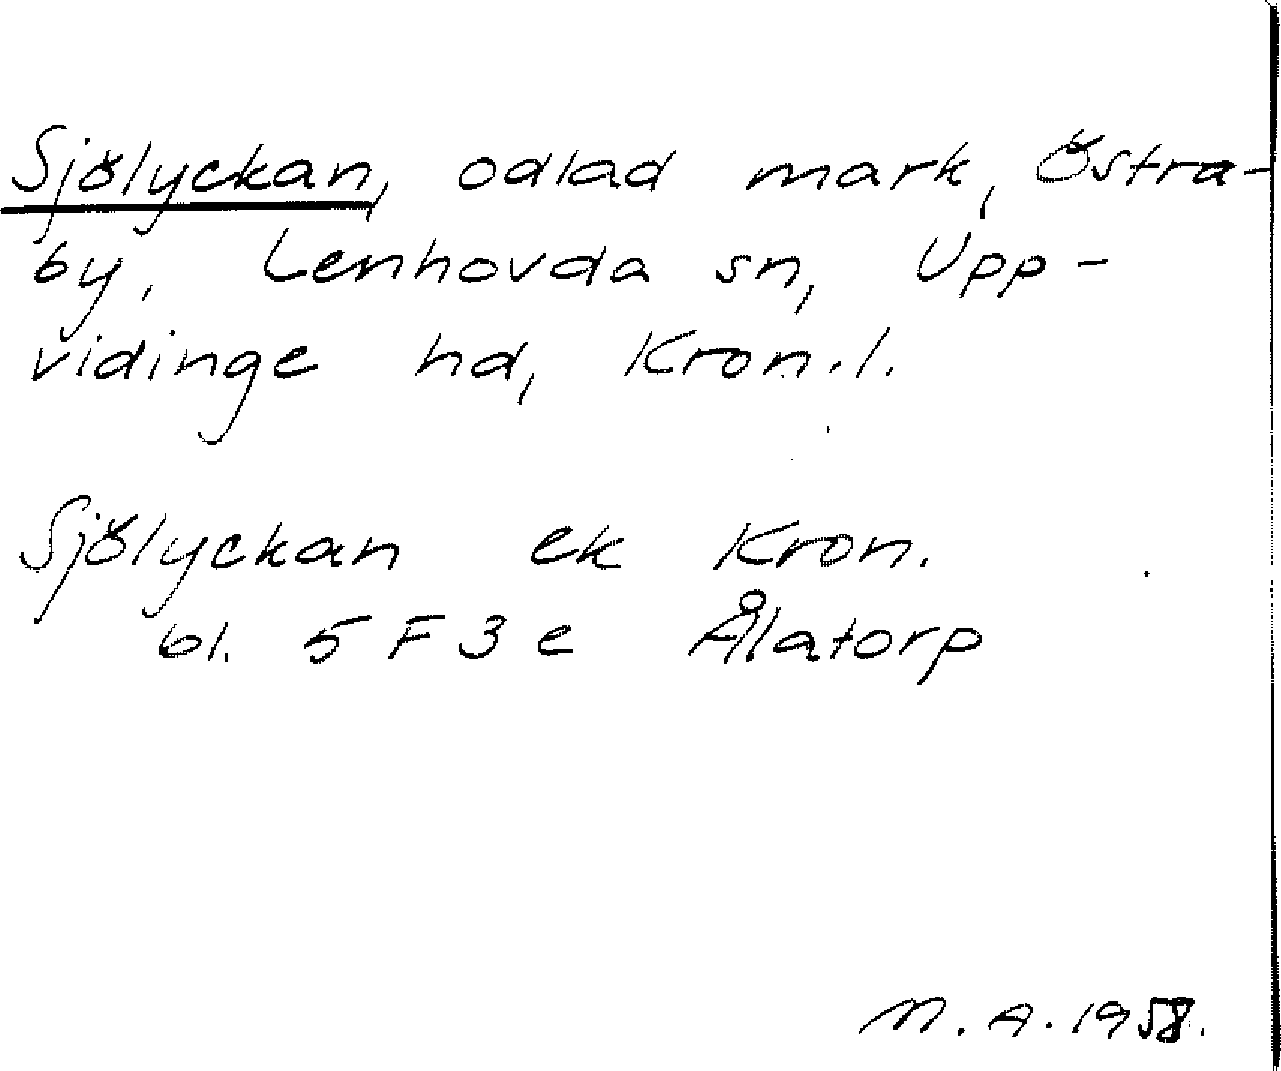 Sjölyckan, odlad mark, Östra-
by, Lenhovda sn, Upp-
vidinge hd, Kron.l.
Sjölyckan ek Kron.
bl. 5 F 3 e Ålatorp
M. A. 1958.